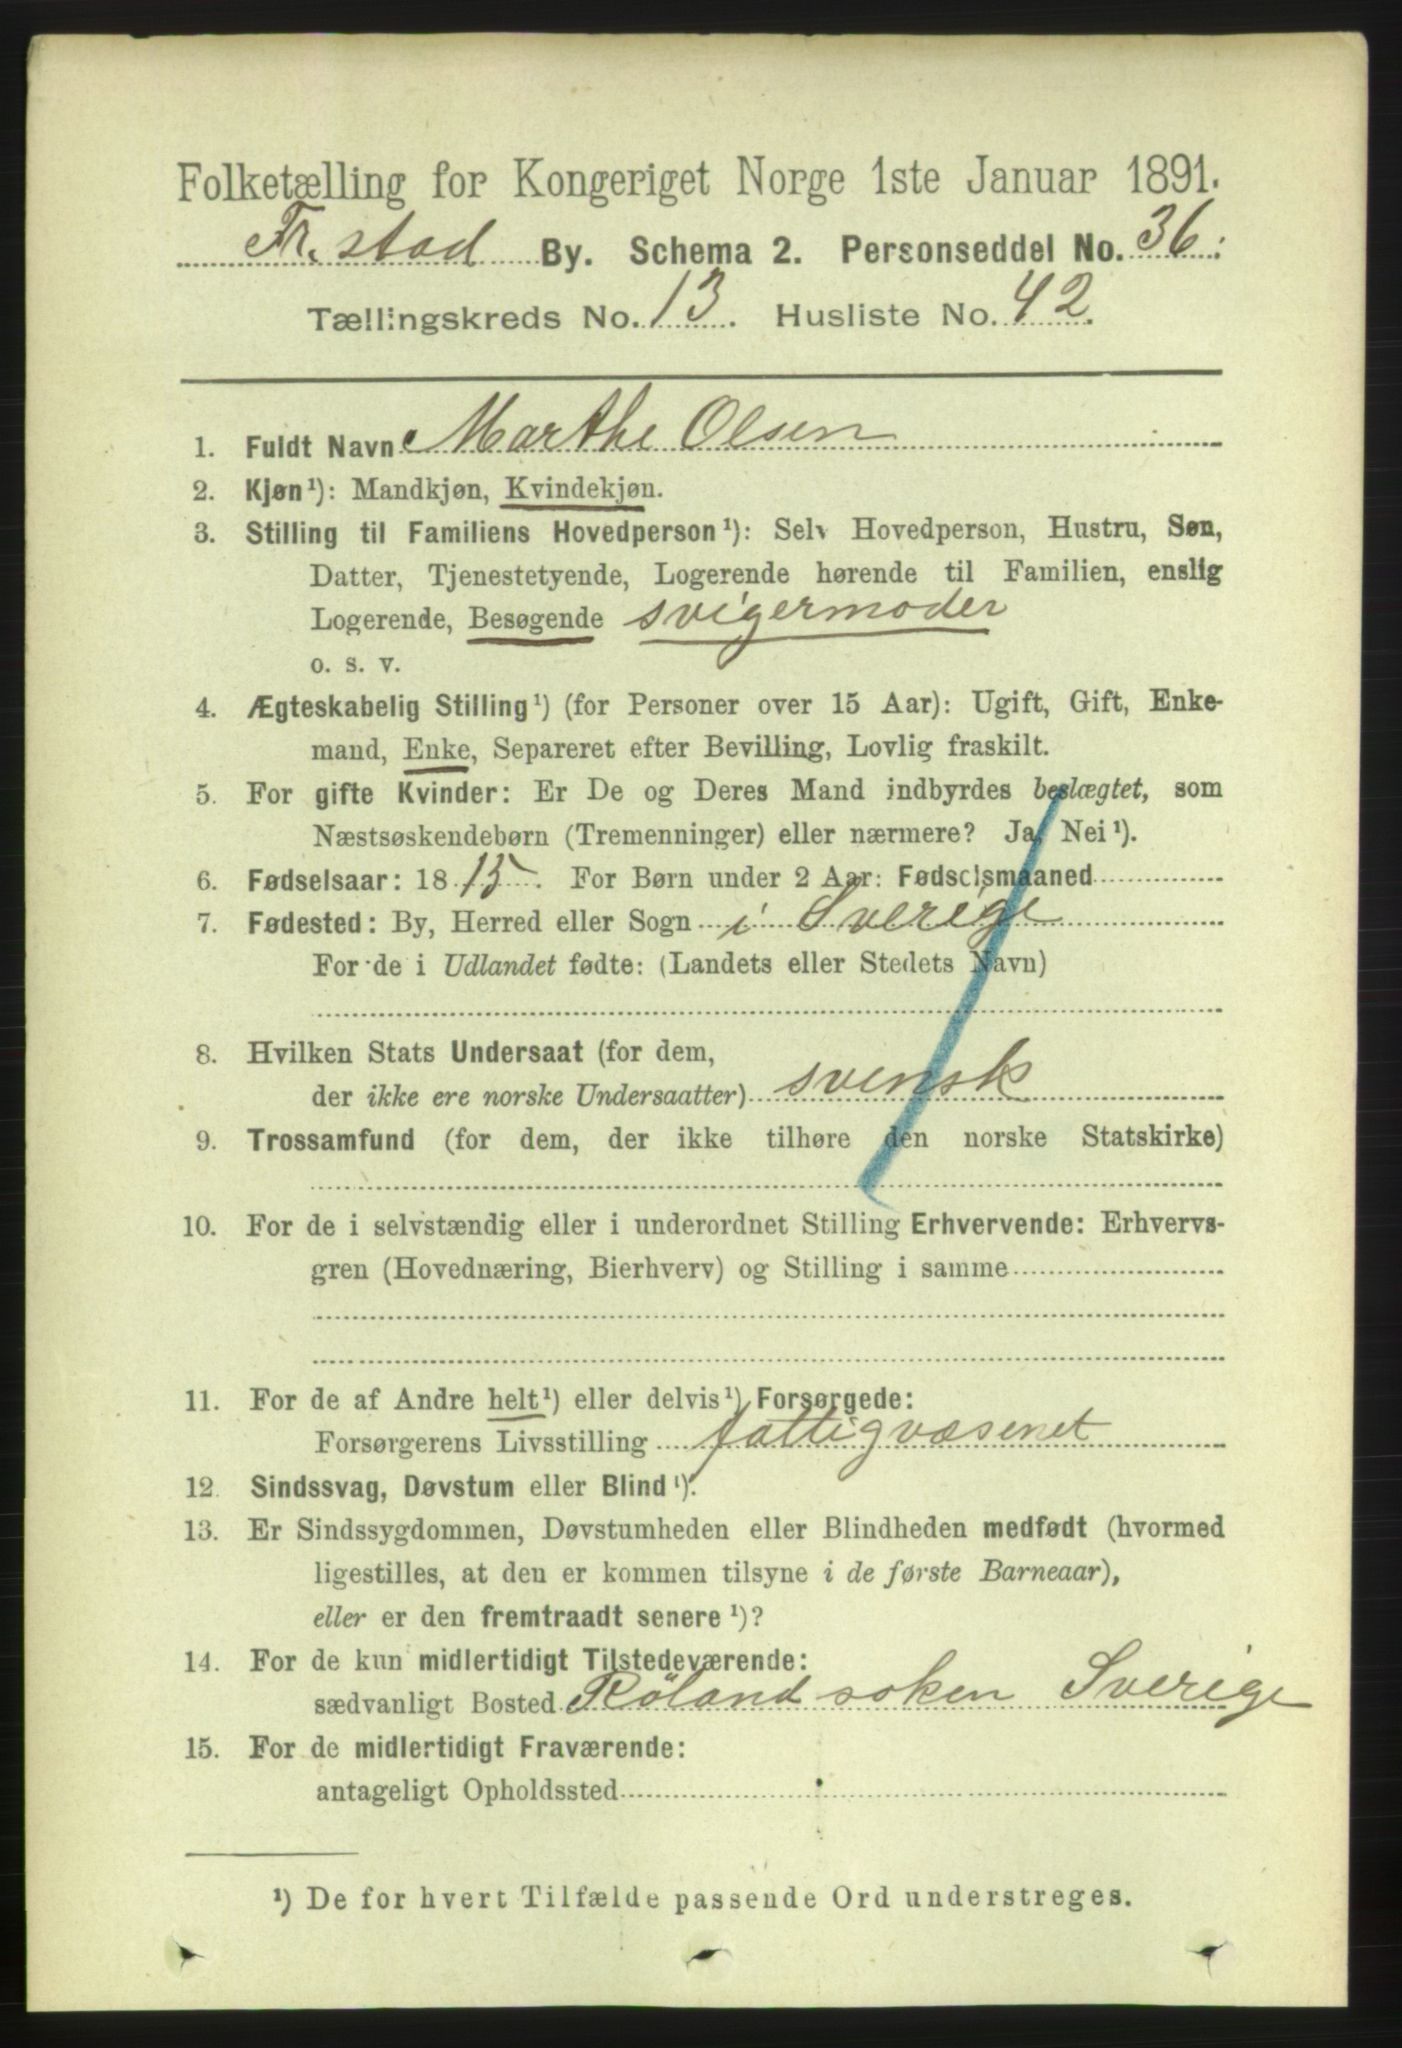 Folketælling for Kongeriget Norge 1ste Januar 1891.
Fr.stad By. Schema 2. Personseddel No. 36.
Tællingskreds No. 13. Husliste No. 42.
1. Fuldt Navn Marthe Olsen
2. Kjøn¹): Mandkjøn, Kvindekjøn.
3. Stilling til Familiens Hovedperson¹): Selv Hovedperson, Hustru, Søn,
Datter, Tjenestetyende, Logerende hørende til Familien, enslig
Logerende, Besøgende svigermoder
o. s. v.
4. Ægteskabelig Stilling¹) (for Personer over 15 Aar): Ugift, Gift, Enke-
mand, Enke, Separeret efter Bevilling, Lovlig fraskilt.
5. For gifte Kvinder: Er De og Deres Mand indbyrdes beslægtet, som
Næstsøskendebørn (Tremenninger) eller nærmere? Ja, Nei¹).
6. Fødselsaar: 1815. For Børn under 2 Aar: Fødselsmaaned
7. Fødested: By, Herred eller Sogn i Sverige
For de i Udlandet fødte: (Landets eller Stedets Navn)
8. Hvilken Stats Undersaat (for dem,
der ikke ere norske Undersaatter) svensk
9. Trossamfund (for dem, der ikke tilhøre den norske Statskirke)
10. For de i selvstændig eller i underordnet Stilling Erhvervende: Erhvervs-
gren (Hovednæring, Bierhverv) og Stilling i samme
11. For de af Andre helt¹) eller delvis¹) Forsørgede:
Forsørgerens Livsstilling fattigvæsenet
12. Sindssvag, Døvstum eller Blind¹).
13. Er Sindssygdommen, Døvstumheden eller Blindheden medfødt (hvormed
ligestilles, at den er kommen tilsyne i de første Barneaar),
eller er den fremtraadt senere¹)?
14. For de kun midlertidigt Tilstedeværende:
sædvanligt Bosted Röland soken Sverige
15. For de midlertidigt Fraværende:
antageligt Opholdssted
¹) De for hvert Tilfælde passende Ord understreges.